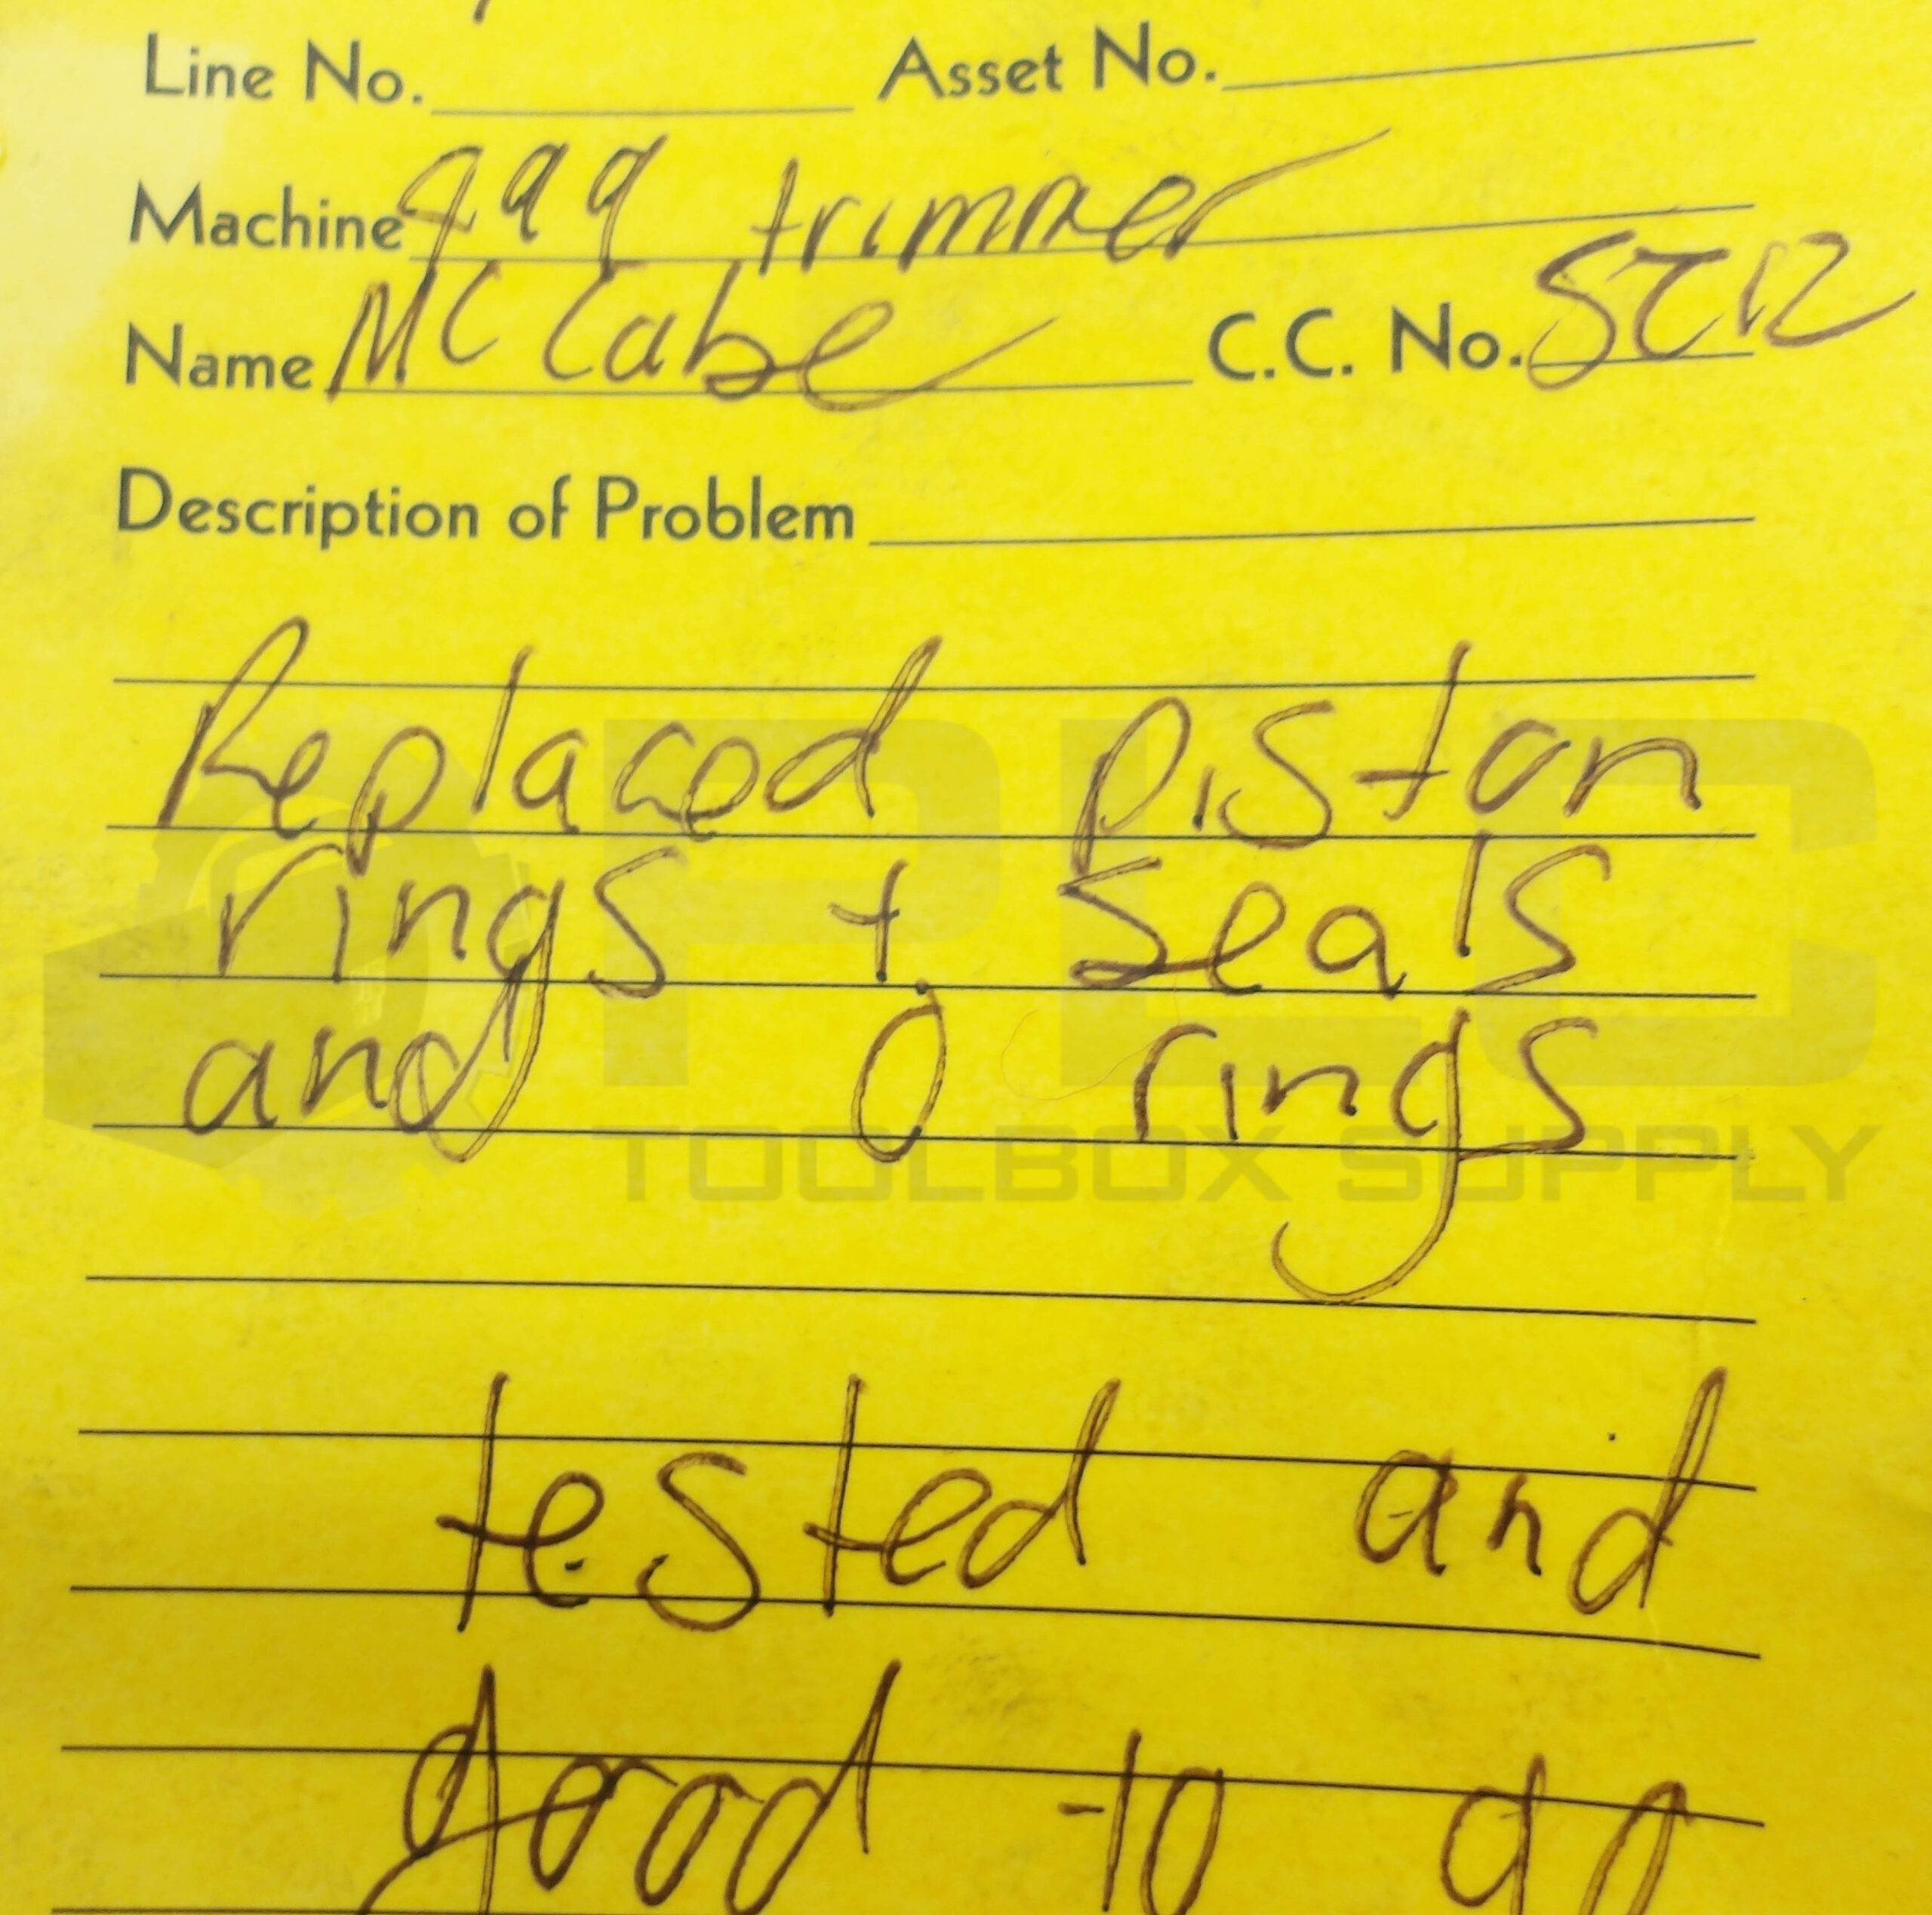 Line No. Asset No.
Machine 999 trimmer
Name McCabe C.C. No.
Description of Problem
Replaced piston
rings + seals
and O rings
tested and
good to go
PLC
TOOLBOX SUPPLY